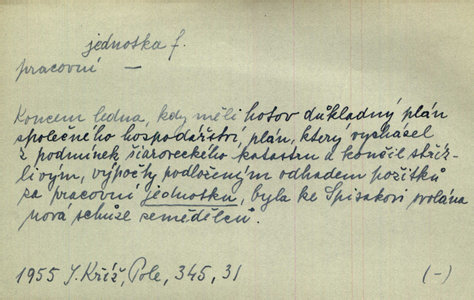 jednotka f.
pracovní —
Koncem ledna, kdy měli hotov důkladný plán
společného hospodářství, plán, který vycházel
z podmínek šiároveckého katastru a končil stříz-
livým, výpočty podloženým odhadem požitků
za pracovní jednotku, byla ke Spišákovi svolána
nová schůze zemědělců.
1955 J. Kříž, Pole, 345, 31 (-)